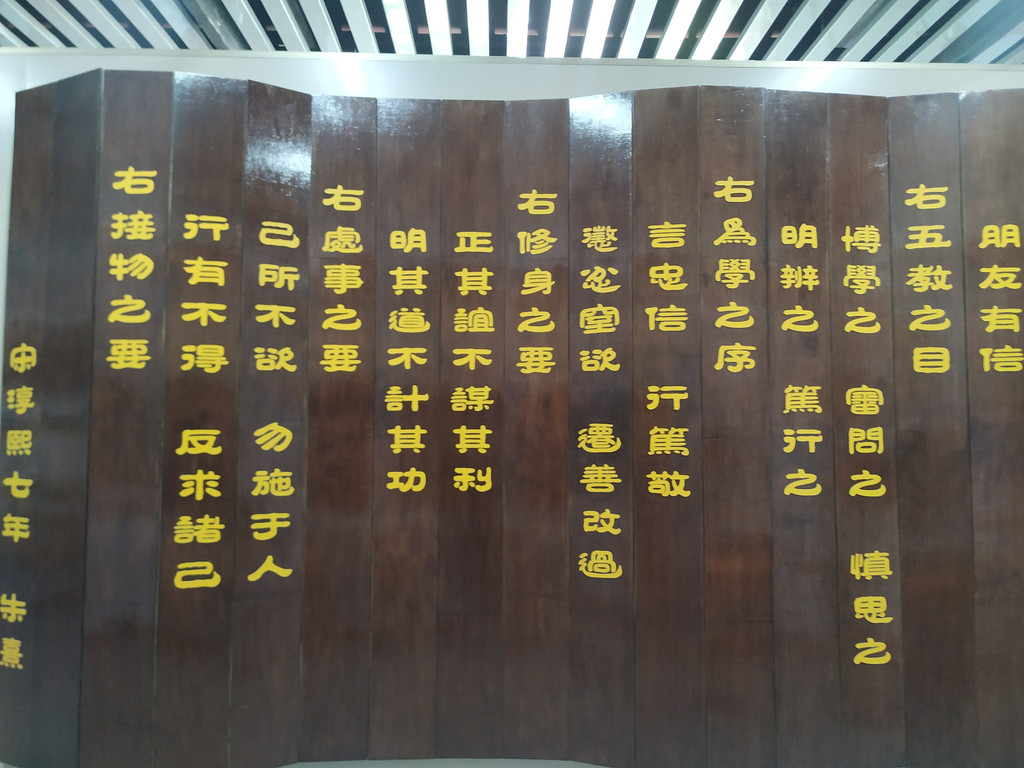 朋友有信
右五教之目
博學之 審問之 慎思之
明辨之 篤行之
右為學之序
言忠信 行篤敬
懲忿窒欲 遷善改過
右修身之要
正其誼不謀其利
明其道不計其功
右處事之要
己所不欲 勿施于人
行有不得 反求諸己
右接物之要
宋淳熙七年 朱熹